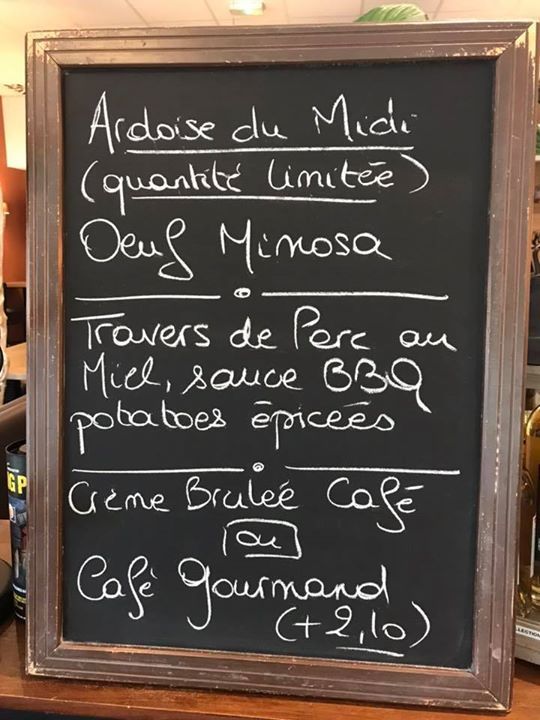 Ardoise du Midi
(quantité limitée)
Oeuf Mimosa
Travers de Porc au
Miel, sauce BBQ
potatoes épiceés
Crème Bruleé Café
ou
Café Gourmand
(+2,10)